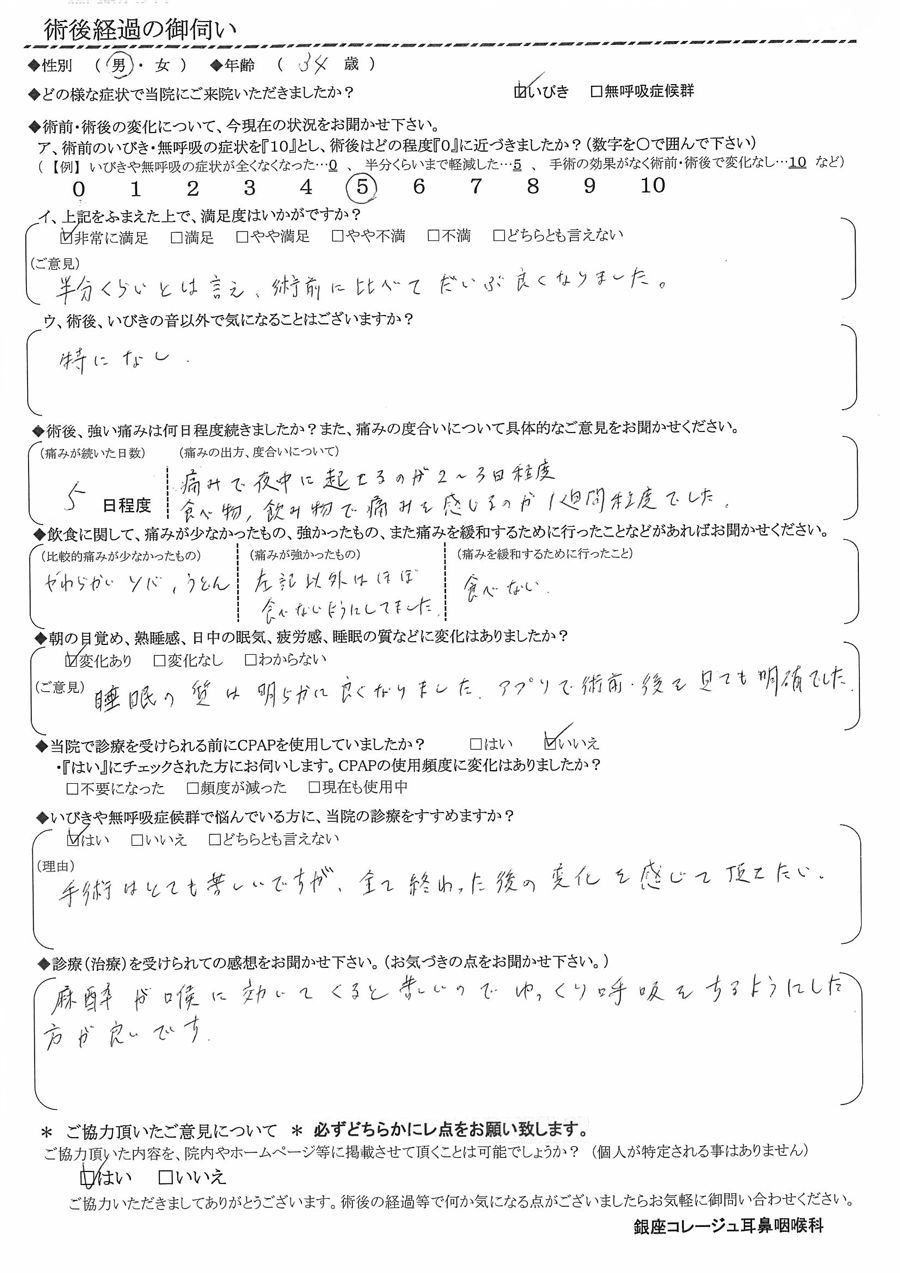 術後経過の御伺い
◆性別 ( 男 ・ 女 ) ◆年齢 ( 34 歳 )
◆どの様な症状で当院にご来院いただきましたか? ☑いびき □無呼吸症候群
◆術前・術後の変化について、今現在の状況をお聞かせ下さい。
ア、術前のいびき・無呼吸の症状を『10』とし、術後はどの程度『0』に近づきましたか?(数字を○で囲んで下さい)
(【例】 いびきや無呼吸の症状が全くなくなった…0 、 半分くらいまで軽減した…5 、 手術の効果がなく術前・術後で変化なし…10 など)
0 1 2 3 4 5 6 7 8 9 10
イ、上記をふまえた上で、満足度はいかがですか?
☑非常に満足 □満足 □やや満足 □やや不満 □不満 □どちらとも言えない
(ご意見)
半分くらいとは言え、術前に比べてだいぶ良くなりました。
ウ、術後、いびきの音以外で気になることはございますか?
特になし.
◆術後、強い痛みは何日程度続きましたか?また、痛みの度合いについて具体的なご意見をお聞かせください。
(痛みが続いた日数) (痛みの出方、度合いについて)
痛みで夜中に起きるのが2~3日程度
5 日程度
食べ物,飲み物で痛みを感じるのが1週間程度でした.
◆飲食に関して、痛みが少なかったもの、強かったもの、また痛みを緩和するために行ったことなどがあればお聞かせください。
(比較的痛みが少なかったもの) (痛みが強かったもの) (痛みを緩和するために行ったこと)
やわらかいソバ,うどん 左記以外はほぼ 食べない.
食べないようにしてました.
◆朝の目覚め、熟睡感、日中の眠気、疲労感、睡眠の質などに変化はありましたか?
☑変化あり □変化なし □わからない
(ご意見) 睡眠の質は明らかに良くなりました.アプリで術前・後を見ても明確でした.
◆当院で診療を受けられる前にCPAPを使用していましたか? □はい ☑いいえ
・『はい』にチェックされた方にお伺いします。CPAPの使用頻度に変化はありましたか?
□不要になった □頻度が減った □現在も使用中
◆いびきや無呼吸症候群で悩んでいる方に、当院の診療をすすめますか?
☑はい □いいえ □どちらとも言えない
(理由)
手術はとても苦しいですが、全て終わった後の変化を感じて頂きたい.
◆診療(治療)を受けられての感想をお聞かせ下さい。(お気づきの点をお聞かせ下さい。)
麻酔が喉に効いてくると苦しいのでゆっくり呼吸をするようにした
方が良いです.
＊ ご協力頂いたご意見について ＊ 必ずどちらかにレ点をお願い致します。
ご協力頂いた内容を、院内やホームページ等に掲載させて頂くことは可能でしょうか? (個人が特定される事はありません)
☑はい □いいえ
ご協力いただきましてありがとうございます。術後の経過等で何か気になる点がございましたらお気軽に御問い合わせください。
銀座コレージュ耳鼻咽喉科